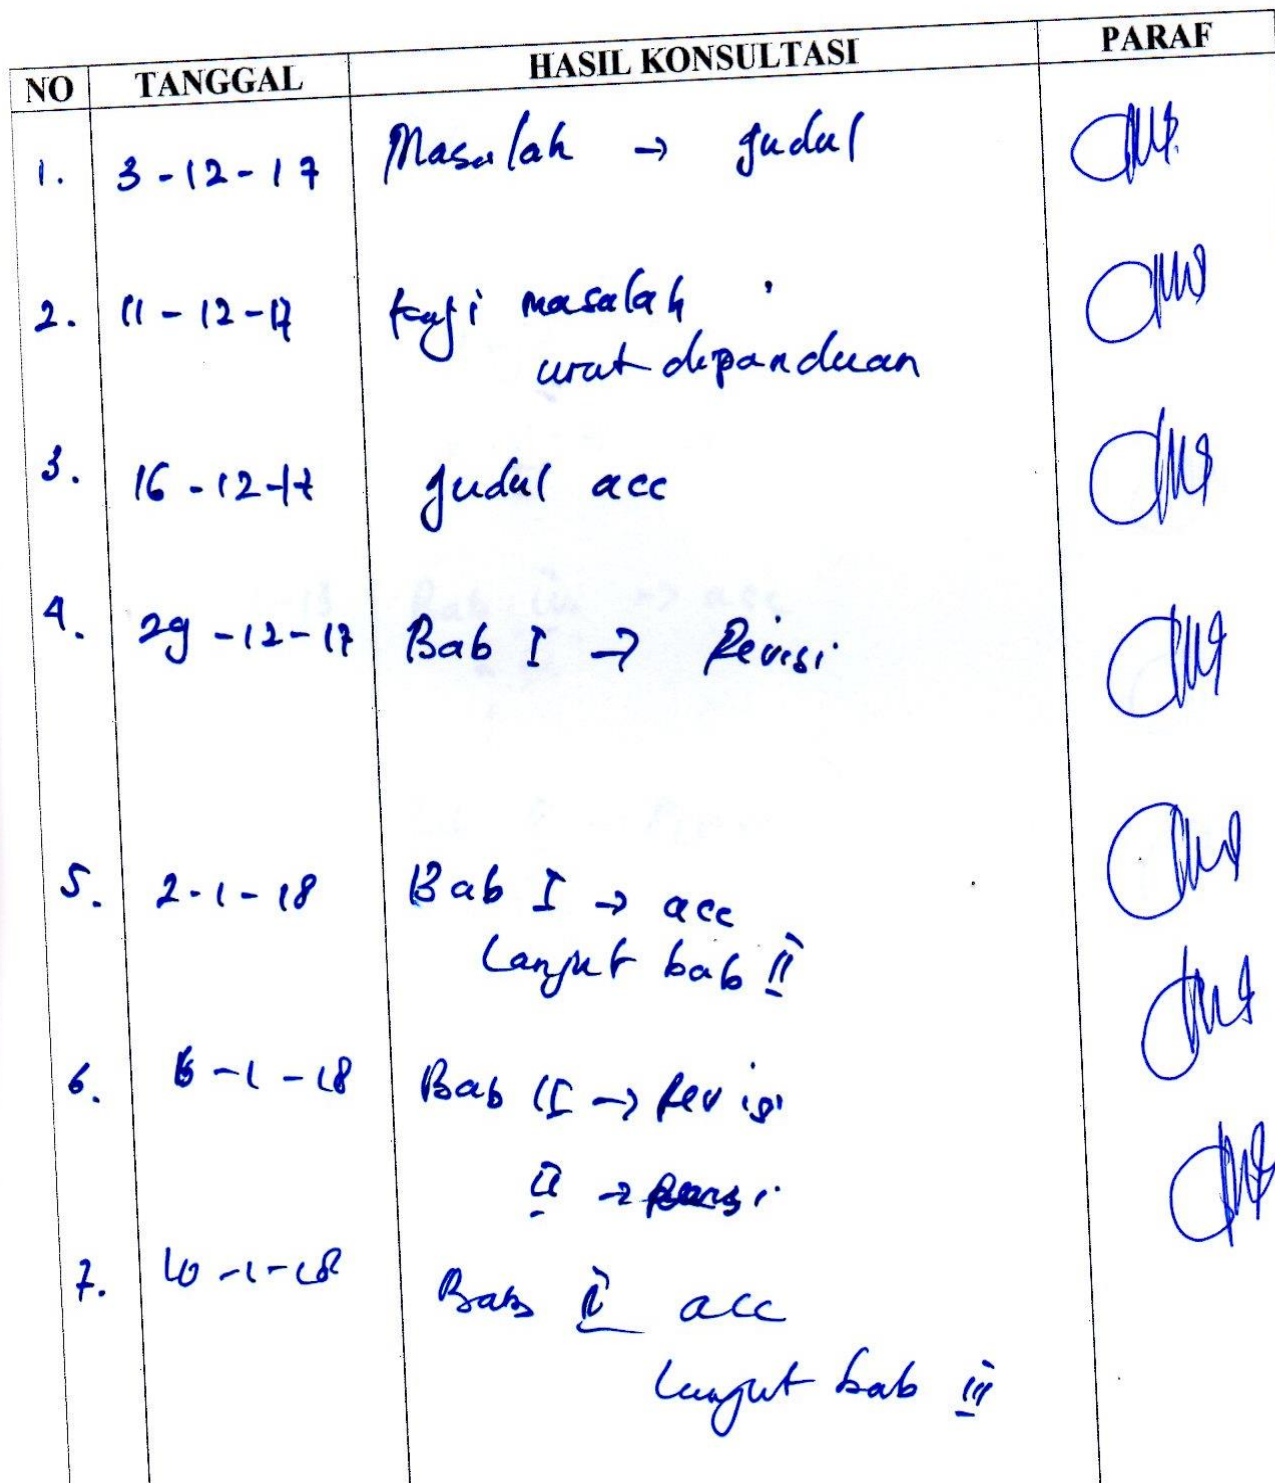 NO TANGGAL HASIL KONSULTASI PARAF
1. 3-12-17 Masalah → Judul
2. 11-12-17 kaji masalah
urut dipanduan
3. 16-12-17 Judul acc
4. 29-12-17 Bab I → Revisi
5. 2-1-18 Bab I → acc
Lanjut bab II
6. 6-1-18 Bab II → Revisi
II → Revisi
7. 10-1-18 Bab II acc
Lanjut bab III